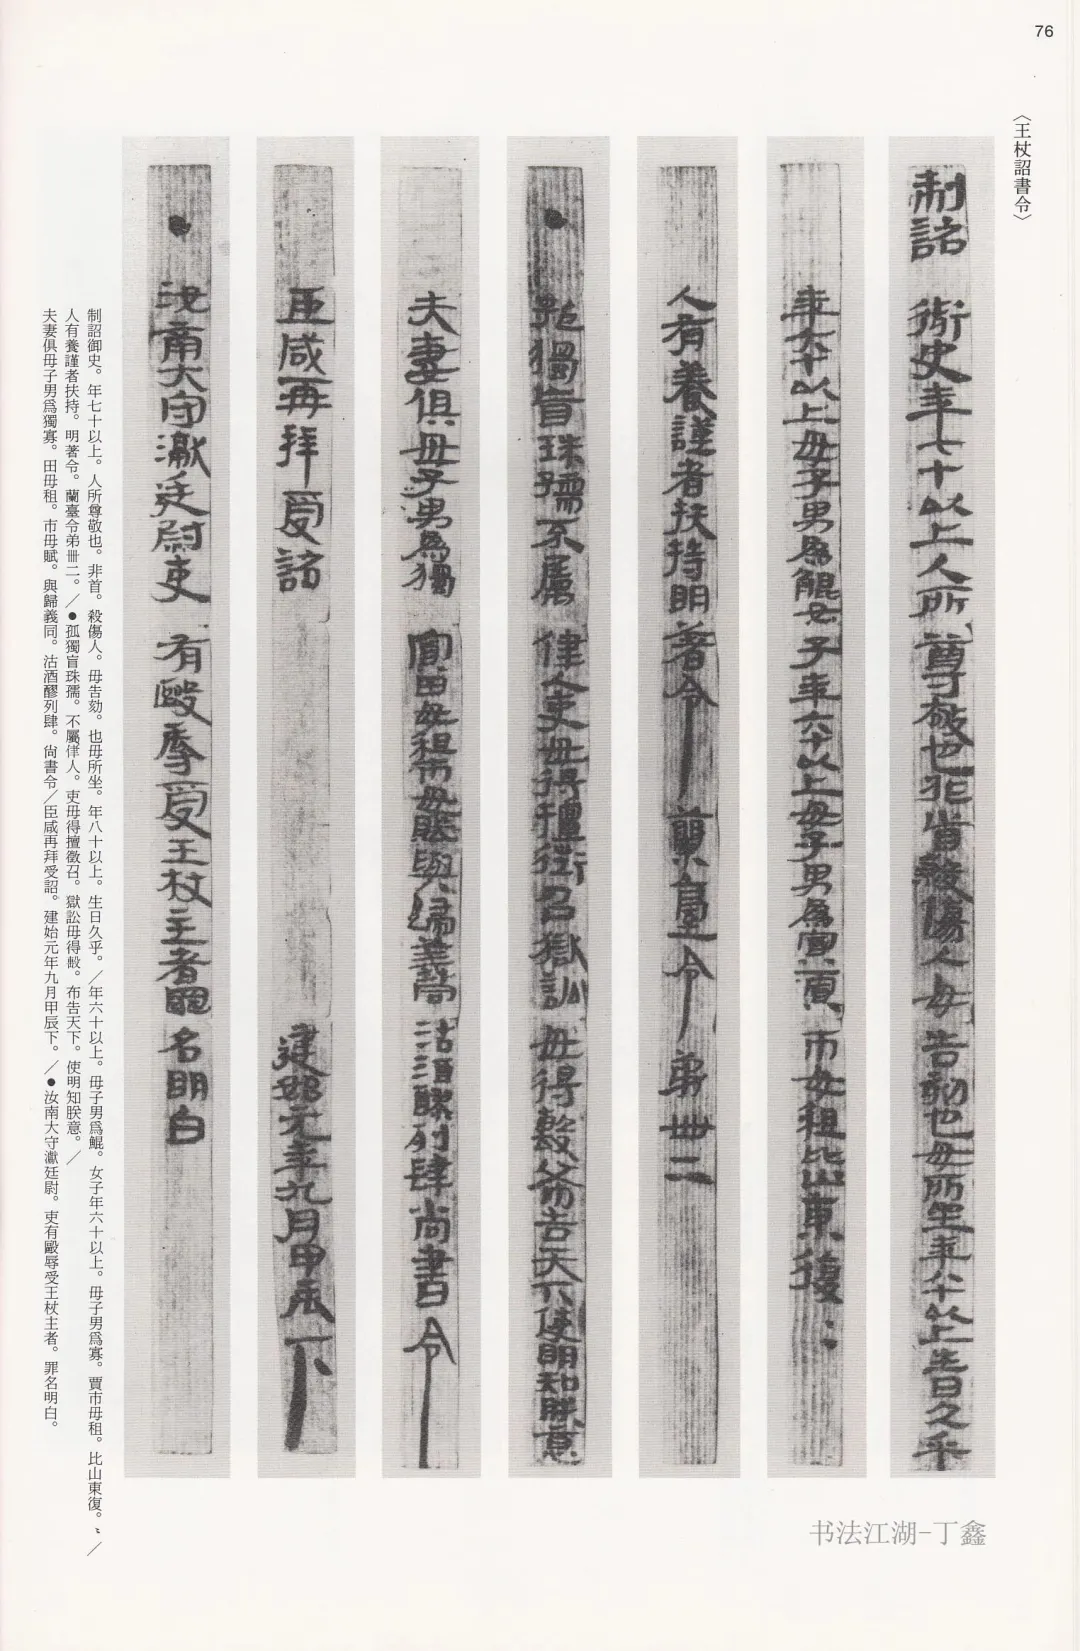 76
〈王杖詔書令〉
制詔御史年七十以上人所尊敬也非首殺傷人毋告劾也毋所坐年八十以上生日久乎
年六十以上毋子男爲鯤女子年六十以上毋子男爲寡賈市毋租比山東復〻
人有養謹者扶持明著令蘭臺令弟卌二
●孤獨盲珠孺不屬律人吏毋得擅徵召獄訟毋得毄布告天下使明知朕意
夫妻俱毋子男爲獨寡田毋租市毋賦與歸義同沽酒醪列肆尚書令
臣咸再拜受詔 建始元年九月甲辰下
●汝南大守讞廷尉吏有毆辱受王杖主者罪名明白
制詔御史。年七十以上。人所尊敬也。非首。殺傷人。毋告劾。也毋所坐。年八十以上。生日久乎。／年六十以上。毋子男爲鯤。女子年六十以上。毋子男爲寡。賈市毋租。比山東復。〻／
人有養謹者扶持。明著令。蘭臺令弟卌二。／●孤獨盲珠孺。不屬律人。吏毋得擅徵召。獄訟毋得毄。布告天下。使明知朕意。／
夫妻俱毋子男爲獨寡。田毋租。市毋賦。與歸義同。沽酒醪列肆。尚書令／臣咸再拜受詔。建始元年九月甲辰下。／●汝南大守讞廷尉。吏有毆辱受王杖主者。罪名明白。
书法江湖-丁鑫